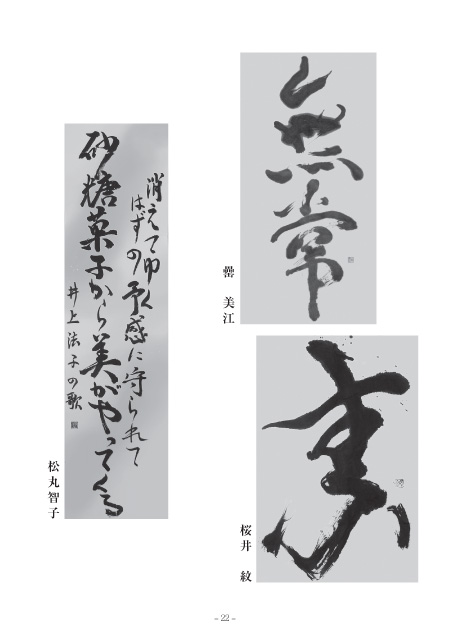 無常
美江
消えてゆくはずの予感に守られて
砂糖菓子から美がやってくる
井上法子の歌
松丸智子
桜井 紋
– 22 –